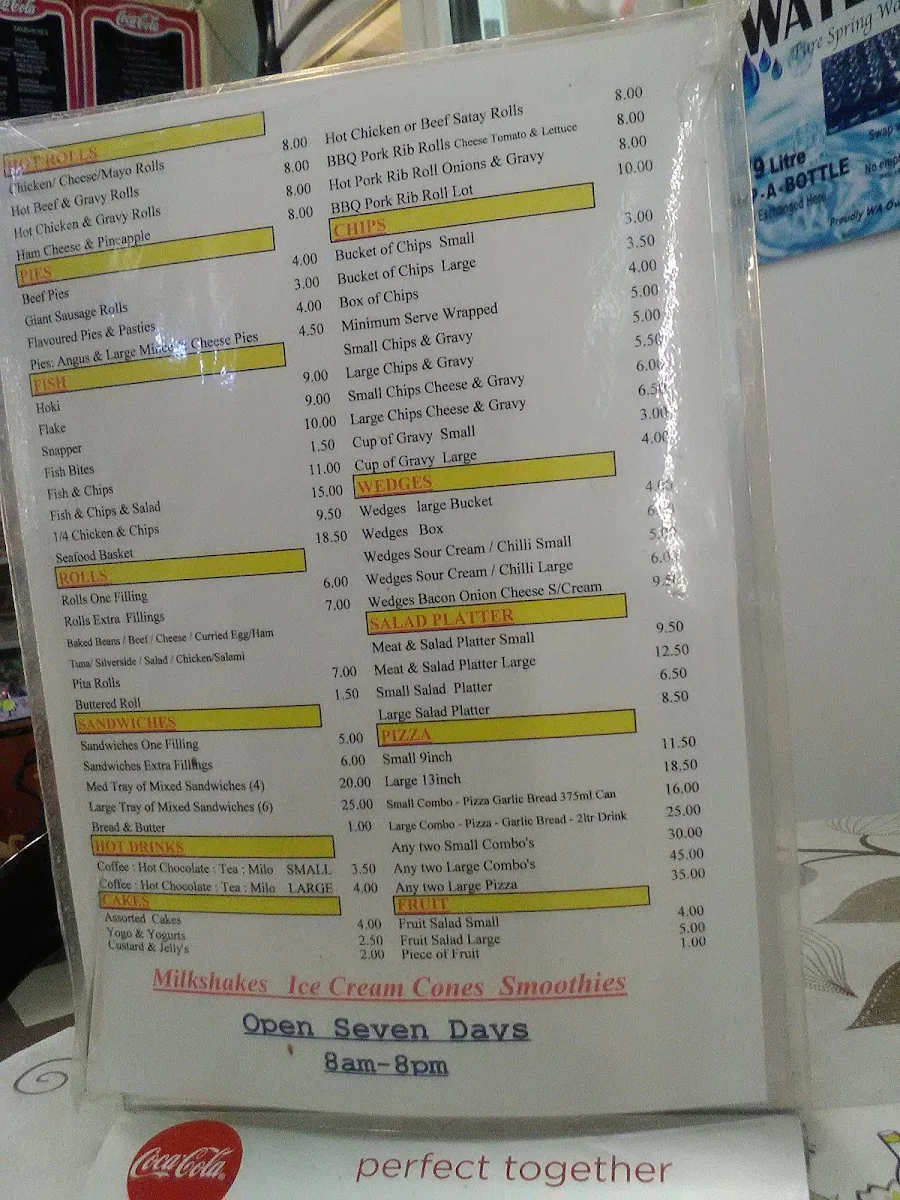 Coca-Cola
WATE
Pure Spring Wa
9 Litre
P-A-BOTTLE
Exchanged Here
Swap
No emp
Proudly WA Ow
HOT ROLLS
Chicken/ Cheese/Mayo Rolls 8.00
Hot Beef & Gravy Rolls 8.00
Hot Chicken & Gravy Rolls 8.00
Ham Cheese & Pineapple 8.00
PIES
Beef Pies 4.00
Giant Sausage Rolls 3.00
Flavoured Pies & Pasties 4.00
Pies: Angus & Large Mince & Cheese Pies 4.50
FISH
Hoki 9.00
Flake 9.00
Snapper 10.00
Fish Bites 1.50
Fish & Chips 11.00
Fish & Chips & Salad 15.00
1/4 Chicken & Chips 9.50
Seafood Basket 18.50
ROLLS
Rolls One Filling 6.00
Rolls Extra Fillings 7.00
Baked Beans / Beef / Cheese / Curried Egg/Ham
Tuna/ Silverside / Salad / Chicken/Salami
Pita Rolls 7.00
Buttered Roll 1.50
SANDWICHES
Sandwiches One Filling 5.00
Sandwiches Extra Fillings 6.00
Med Tray of Mixed Sandwiches (4) 20.00
Large Tray of Mixed Sandwiches (6) 25.00
Bread & Butter 1.00
HOT DRINKS
Coffee : Hot Chocolate : Tea : Milo SMALL 3.50
Coffee : Hot Chocolate : Tea : Milo LARGE 4.00
CAKES
Assorted Cakes 4.00
Yogo & Yogurts 2.50
Custard & Jelly's 2.00
Hot Chicken or Beef Satay Rolls 8.00
BBQ Pork Rib Rolls Cheese Tomato & Lettuce 8.00
Hot Pork Rib Roll Onions & Gravy 8.00
BBQ Pork Rib Roll Lot 10.00
CHIPS
Bucket of Chips Small 3.00
Bucket of Chips Large 3.50
Box of Chips 4.00
Minimum Serve Wrapped 5.00
Small Chips & Gravy 5.00
Large Chips & Gravy 5.50
Small Chips Cheese & Gravy 6.00
Large Chips Cheese & Gravy 6.50
Cup of Gravy Small 3.00
Cup of Gravy Large 4.00
WEDGES
Wedges large Bucket 4.00
Wedges Box
Wedges Sour Cream / Chilli Small 5.00
Wedges Sour Cream / Chilli Large 6.00
Wedges Bacon Onion Cheese S/Cream 9.50
SALAD PLATTER
Meat & Salad Platter Small 9.50
Meat & Salad Platter Large 12.50
Small Salad Platter 6.50
Large Salad Platter 8.50
PIZZA
Small 9inch 11.50
Large 13inch 18.50
Small Combo - Pizza Garlic Bread 375ml Can 16.00
Large Combo - Pizza - Garlic Bread - 2ltr Drink 25.00
Any two Small Combo's 30.00
Any two Large Combo's 45.00
Any two Large Pizza 35.00
FRUIT
Fruit Salad Small 4.00
Fruit Salad Large 5.00
Piece of Fruit 1.00
Milkshakes Ice Cream Cones Smoothies
Open Seven Days
8am-8pm
Coca-Cola
perfect together